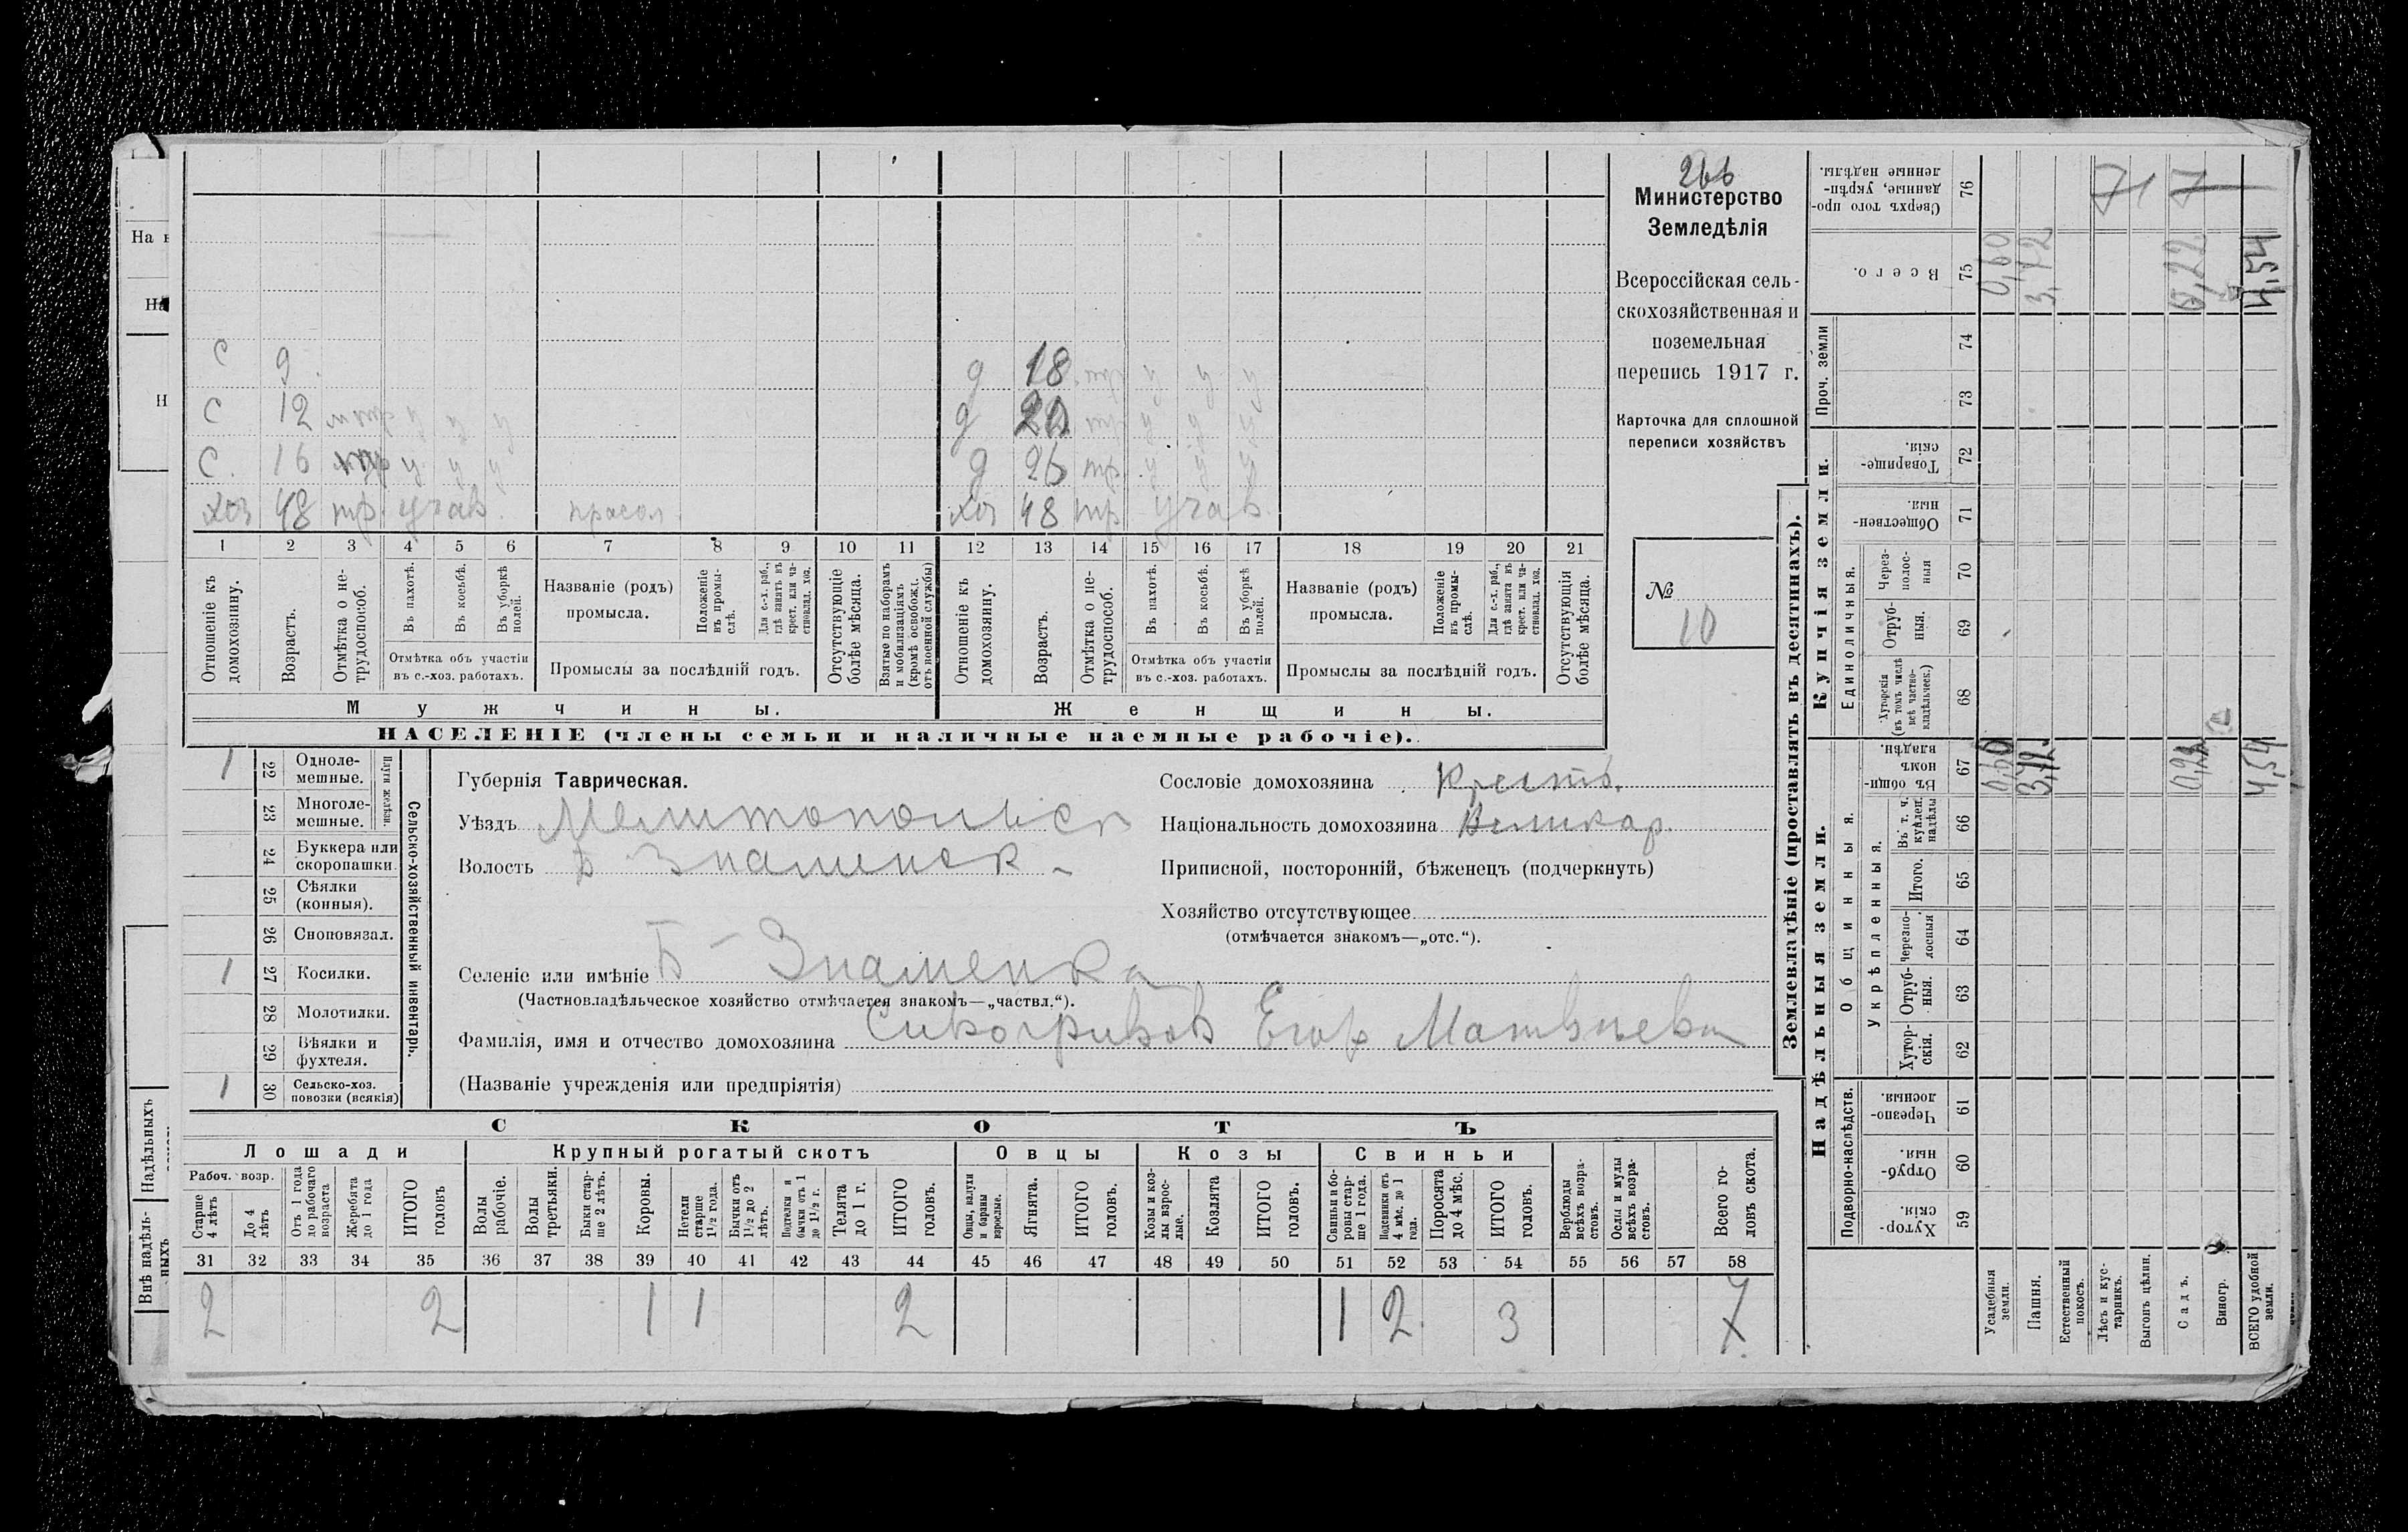 266
Министерство
Земледѣлія
Всероссійская сель-
скохозяйственная и
поземельная
перепись 1917 г.
Карточка для сплошной
переписи хозяйствъ
№
10
С 9
С 12
С. 16
хоз 48 тр. учав. прасол
д 18 тр у у у
д 20 тр у у у
д 26 тр. у у у
хоз 48 тр учав
1 2 3 4 5 6 7 8 9 10 11 12 13 14 15 16 17 18 19 20 21
Отношеніе къ домохозяину.
Возрастъ.
Отмѣтка о не-трудоспособ.
Въ пахотѣ.
Въ косьбѣ.
Въ уборкѣ полей.
Отмѣтка объ участіи
въ с.-хоз. работахъ.
Названіе (родъ)
промысла.
Положеніе въ промы-слѣ.
Для с.-х. раб., гдѣ занятъ въ крест. или ча-стновлад. хоз.
Промыслы за послѣдній годъ.
Отсутствующіе болѣе мѣсяца.
Взятые по наборамъ и мобилизаціямъ (кромѣ освобожд. отъ военной службы)
Отношеніе къ домохозяину.
Возрастъ.
Отмѣтка о не-трудоспособ.
Въ пахотѣ.
Въ косьбѣ.
Въ уборкѣ полей.
Отмѣтка объ участіи
въ с.-хоз. работахъ.
Названіе (родъ)
промысла.
Положеніе въ промы-слѣ.
Для с.-х. раб., гдѣ занятъ въ крест. или ча-стновлад. хоз.
Промыслы за послѣдній годъ.
Отсутствующія болѣе мѣсяца.
Мужчины.
Женщины.
НАСЕЛЕНІЕ (члены семьи и наличные наемные рабочіе).
1 22 Одноле-мешные.
23 Многоле-мешные.
Плуги желѣзн.
24 Буккера или скоропашки.
25 Сѣялки (конныя).
26 Сноповязал.
1 27 Косилки.
28 Молотилки.
29 Вѣялки и фухтеля.
1 30 Сельско-хоз. повозки (всякія)
Сельско-хозяйственный инвентарь.
Губернія Таврическая.
Уѣздъ Мелитопольск
Волость Б Знаменск
Селеніе или имѣніе Б-Знаменка
(Частновладѣльческое хозяйство отмѣчается знакомъ—„частвл.“).
Фамилія, имя и отчество домохозяина Сивогривов Егор Матвѣев
(Названіе учрежденія или предпріятія)
Сословіе домохозяина Крестъ.
Національность домохозяина Великор.
Приписной, посторонній, бѣженецъ (подчеркнуть)
Хозяйство отсутствующее
(отмѣчается знакомъ—„отс.“).
СКОТЪ
Лошади
Крупный рогатый скотъ
Овцы
Козы
Свиньи
Рабоч. возр.
Старше 4 лѣтъ
До 4 лѣтъ
Отъ 1 года до рабочаго возраста
Жеребята до 1 года
ИТОГО головъ
Волы рабочіе.
Волы третьяки.
Быки стар-ше 2 лѣтъ.
Коровы.
Нетели старше 1½ года.
Бычки отъ 1½ до 2 лѣтъ.
Подтелки и бычки отъ 1 до 1½ г.
Телята до 1 г.
ИТОГО головъ.
Овцы, валухи и бараны взрослые.
Ягнята.
ИТОГО головъ.
Козы и коз-лы взрос-лые.
Козлята
ИТОГО головъ.
Свиньи и бо-ровы стар-ше 1 года.
Подсвинки отъ 4 мѣс. до 1 года.
Поросята до 4 мѣс.
ИТОГО головъ.
Верблюды всѣхъ возра-стовъ.
Ослы и мулы всѣхъ возра-стовъ.
Всего го-ловъ скота.
31 32 33 34 35 36 37 38 39 40 41 42 43 44 45 46 47 48 49 50 51 52 53 54 55 56 57 58
2 2 1 1 2 1 2 3 7
Землевладѣніе (проставлять въ десятинахъ).
Купчія земли.
Надѣльныя земли.
Сверхъ того про-данные, укрѣп-ленные надѣлы. 76
Всего. 75
Проч. земли
74
73
Товарище-скія. 72
Обществен-ныя. 71
Единоличныя.
Через-полос-ныя 70
Отруб-ныя. 69
Хуторскія (въ томъ числѣ всѣ частно-владѣльческ.) 68
Общинныя.
Въ общи-номъ владѣн. 67
Укрѣпленныя.
Въ т. ч. куплен. надѣлы 66
Итого. 65
Черезпо-лосныя 64
Отруб-ныя. 63
Хутор-скія. 62
Подворно-наслѣдств.
Черезпо-лосныя. 61
Отруб-ныя. 60
Хутор-скія. 59
Усадебныя земли. 0,60 0,60
Пашня. 3,72 3,72
Естественный покосъ.
Лѣсъ и кус-тарникъ.
Выгонъ цѣлин.
Садъ. 0,22 0,22
Виногр.
ВСЕГО удобной земли. 4,54 4,54
Надѣльныхъ
Внѣ надѣль-ныхъ